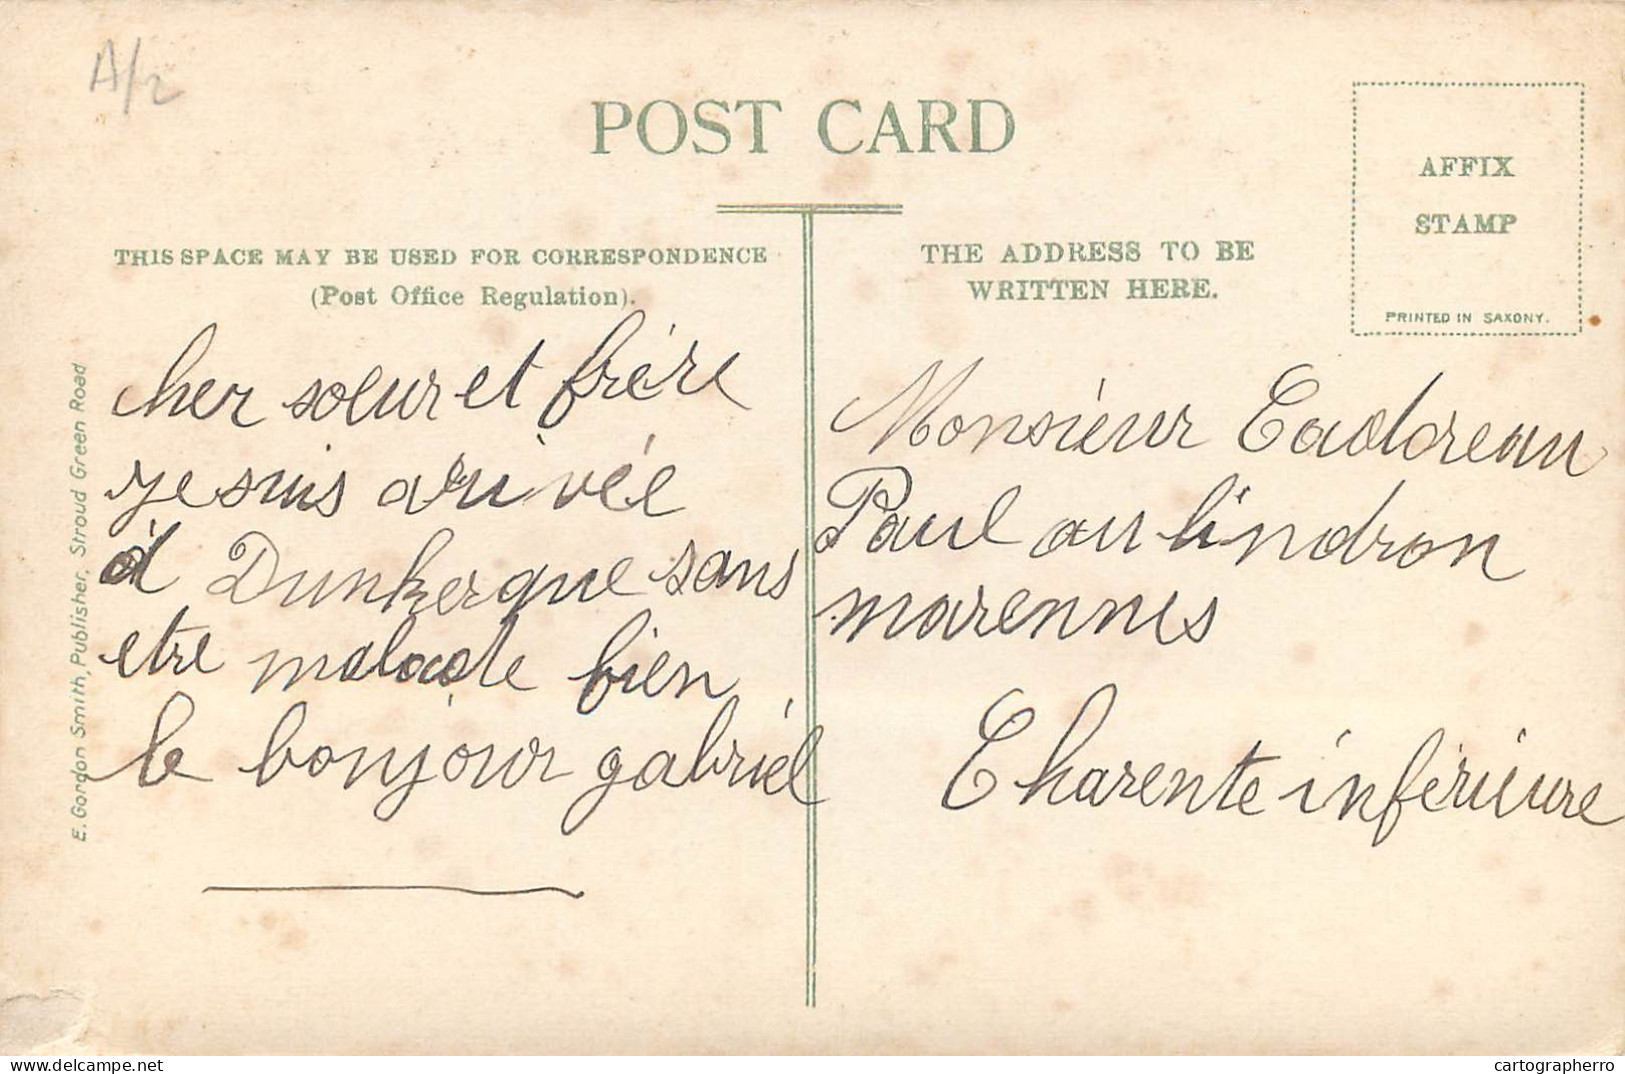 A/2
POST CARD
AFFIX
STAMP
PRINTED IN SAXONY.
THIS SPACE MAY BE USED FOR CORRESPONDENCE
(Post Office Regulation).
THE ADDRESS TO BE
WRITTEN HERE.
E. Gordon Smith, Publisher, Stroud Green Road
cher soeur et frére
je suis arivée
á Dunkerque sans
etre malade bien
le bonjour gabriel
Monsieur Cadoreau
Paul au lindron
marennes
Charente inférieure
cartographerro